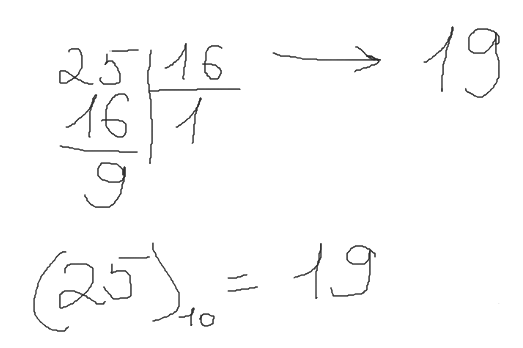 25 | 16 → 19
16 | 1
9
(25)₁₀ = 19